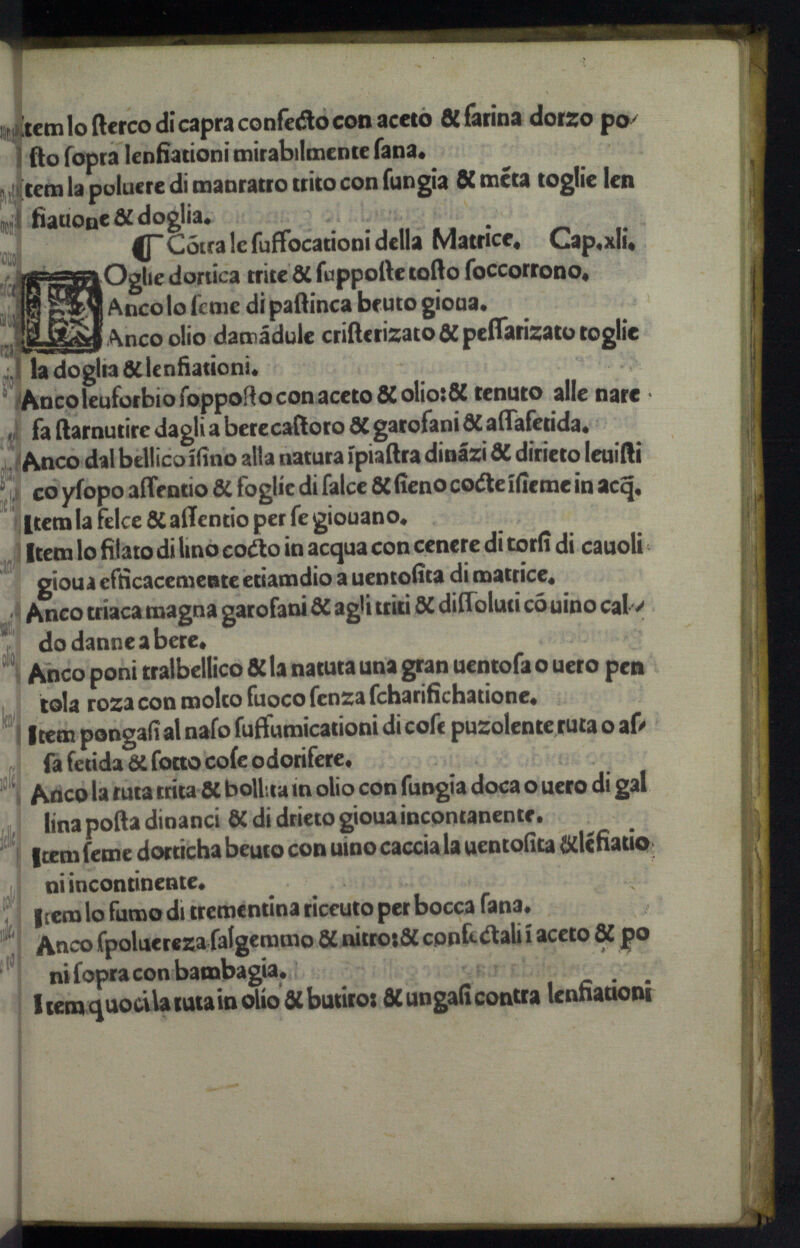 Item lo sterco di capra confecto con aceto & farina dorzo po
sto sopra lenfiationi mirabilmente sana.
Item la poluere di manratro trito con sungia & mēta toglie len
fiatione & doglia.
Cōtra le suffocationi della Matrice. Cap.xli.
FOglie dortica trite & supposte tosto soccorrono.
Anco lo seme di pastinca beuto gioua.
Anco olio damādule cristerizato & pessarizato toglie
la doglia & lenfiationi.
Anco leuforbio sopposto con aceto & olio: & tenuto alle nare
fa starnutire dagli a bere castoro & garofani & assafetida.
Anco dal bellico īsino alla natura īpiastra dināzi & dirieto leuisti
co ysopo assentio & foglie di salce & fieno cocte īsieme in acq̄.
Item la felce & assentio per se giouano.
Item lo filato di lino cocto in acqua con cenere di torsi di cauoli
gioua efficacemente etiamdio a uentosita di matrice.
Anco triaca magna garofani & agli triti & dissoluti cō uino cal
do danne a bere.
Anco poni tralbellico & la natura una gran uentosa o uero pen
tola roza con molto fuoco senza scharifichatione.
Item pongasi al naso suffumicationi di cose puzolente ruta o as
sa fetida & sotto cose odorifere.
Anco la ruta trita & bollita in olio con sungia doca o uero di gal
lina posta dinanci & di drieto gioua incontanente.
Item seme dorticha beuto con uino caccia la uentosita & lēfiatio
ni incontinente.
Item lo fumo di trementina riceuto per bocca sana.
Anco spoluereza salgemmo & nitro: & confectali ī aceto & po
ni sopra con bambagia.
Item quoci la ruta in olio & butiro: & ungasi contra lenfiationi